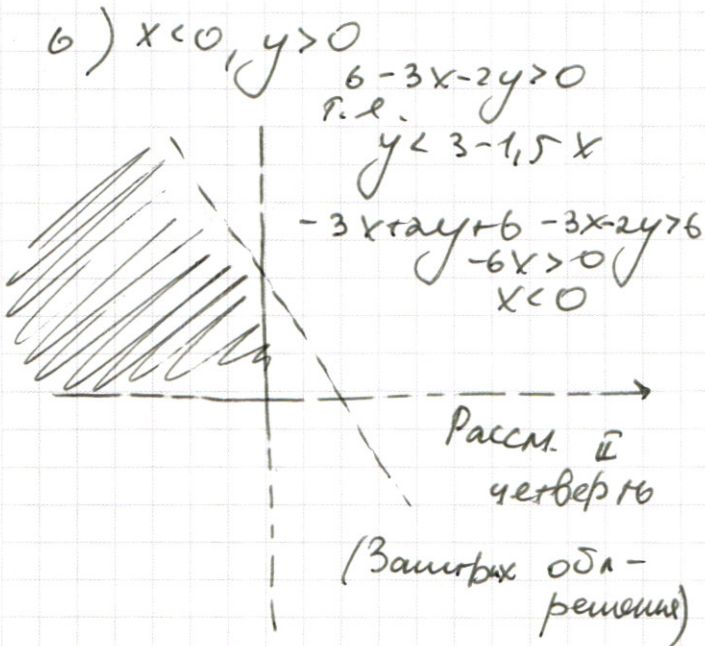 б) x<0, y>0
6-3x-2y>0
т.е.
y<3-1,5x
-3x+2y+6-3x-2y>6
-6x>0
x<0
Рассм. II
четверть
(Заштрих обл-
решения)